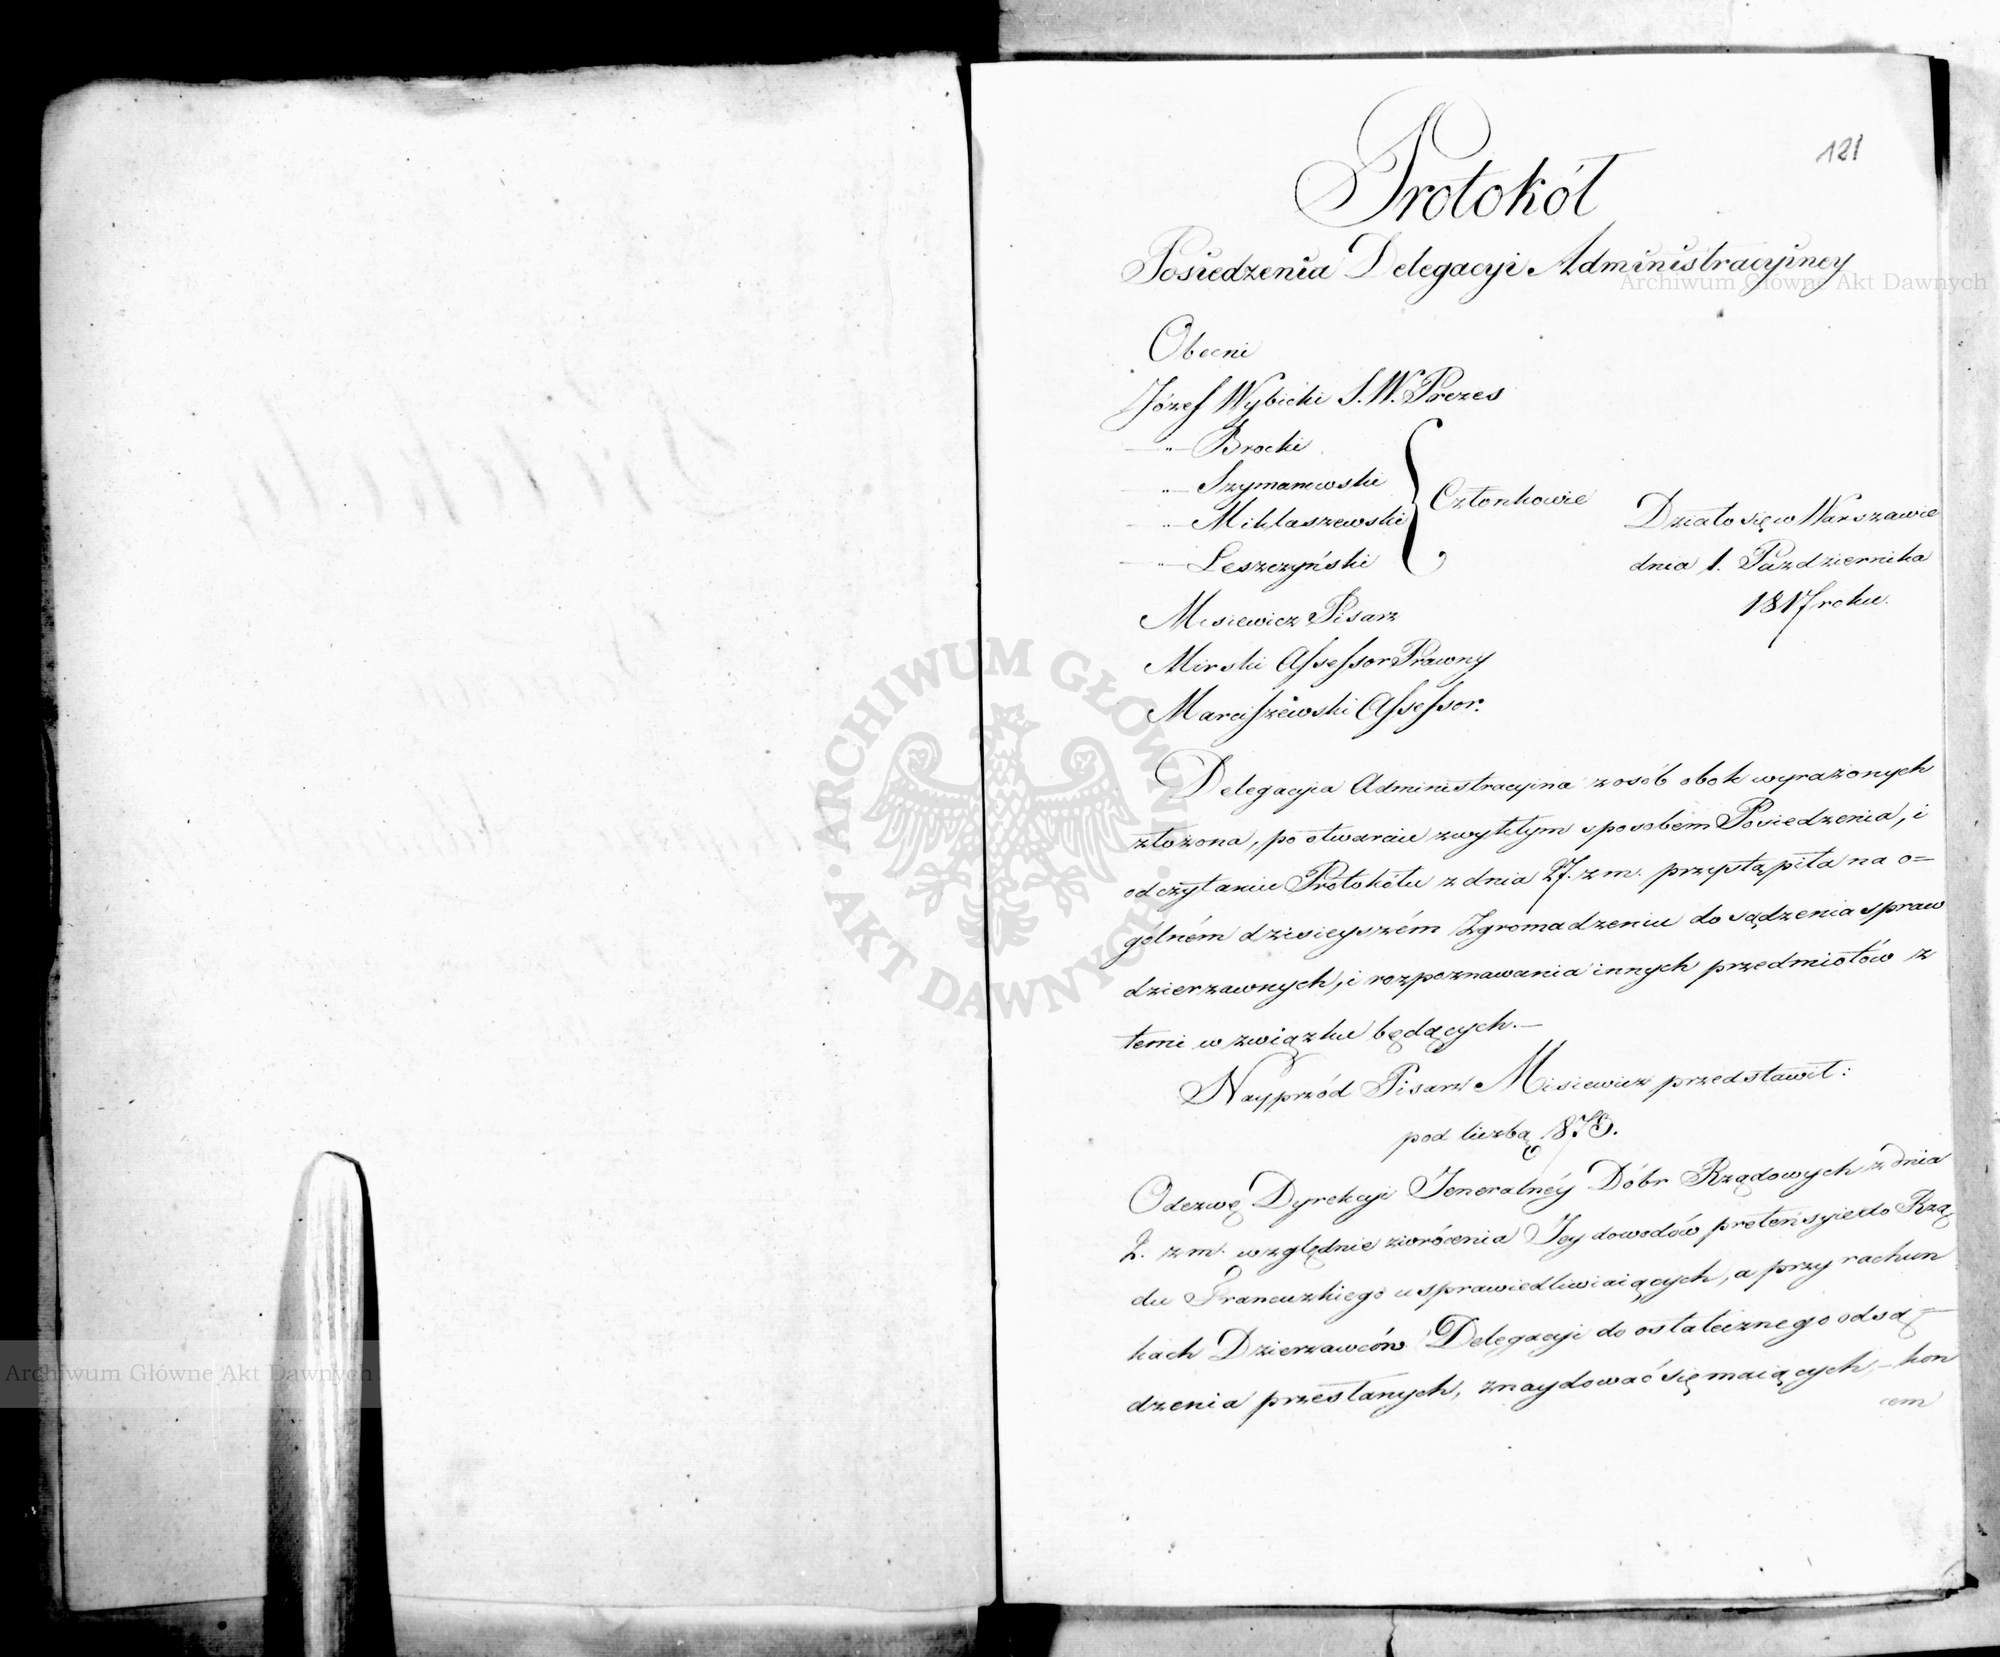 121
Protokół
Posiedzenia Delegacyi Administracyiney
Obecni
Józef Wybicki S.W. Prezes
—"— Brocki
—"— Szymanowski
—"— Miklaszewski
—"— Leszczyński
Członkowie
Działo się w Warszawie
dnia 1. Pazdziernika
1817 roku.
Misiewicz Pisarz
Mirski Assessor Prawny
Marciszewski Assessor.
Delegacyia Administracyina z osób obok wyrażonych
złożona, po otwarciu zwykłym sposobem Posiedzenia, i
odczytaniu Protokółu z dnia 27. z m. przystąpiła na o=
gólném dzisieyszém Zgromadzeniu do sądzenia spraw
dzierzawnych, i rozpoznawania innych przedmiotów z
temi w związku będących.—
Nayprzód Pisarz Misiewicz przedstawił:
pod liczbą 1873.
Odezwę Dyrekcyi Jeneralnéy Dóbr Rządowych z dnia
2. z m. względnie zwrócenia Jey dowodów pretensyie do Rzą
du Francuzkiego usprawiedliwiaiących, a przy rachun
kach Dzierzawców Delegacyi do ostatecznego odsą=
dzenia przesłanych, znaydować się maiących,— kon
cem
Archiwum Główne Akt Dawnych
Archiwum Główne Akt Dawnych
ARCHIWUM GŁÓWNE AKT DAWNYCH